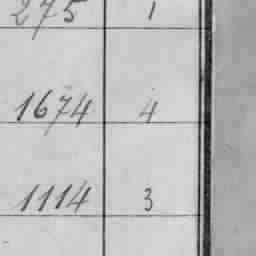 275 1
1674 4
1114 3